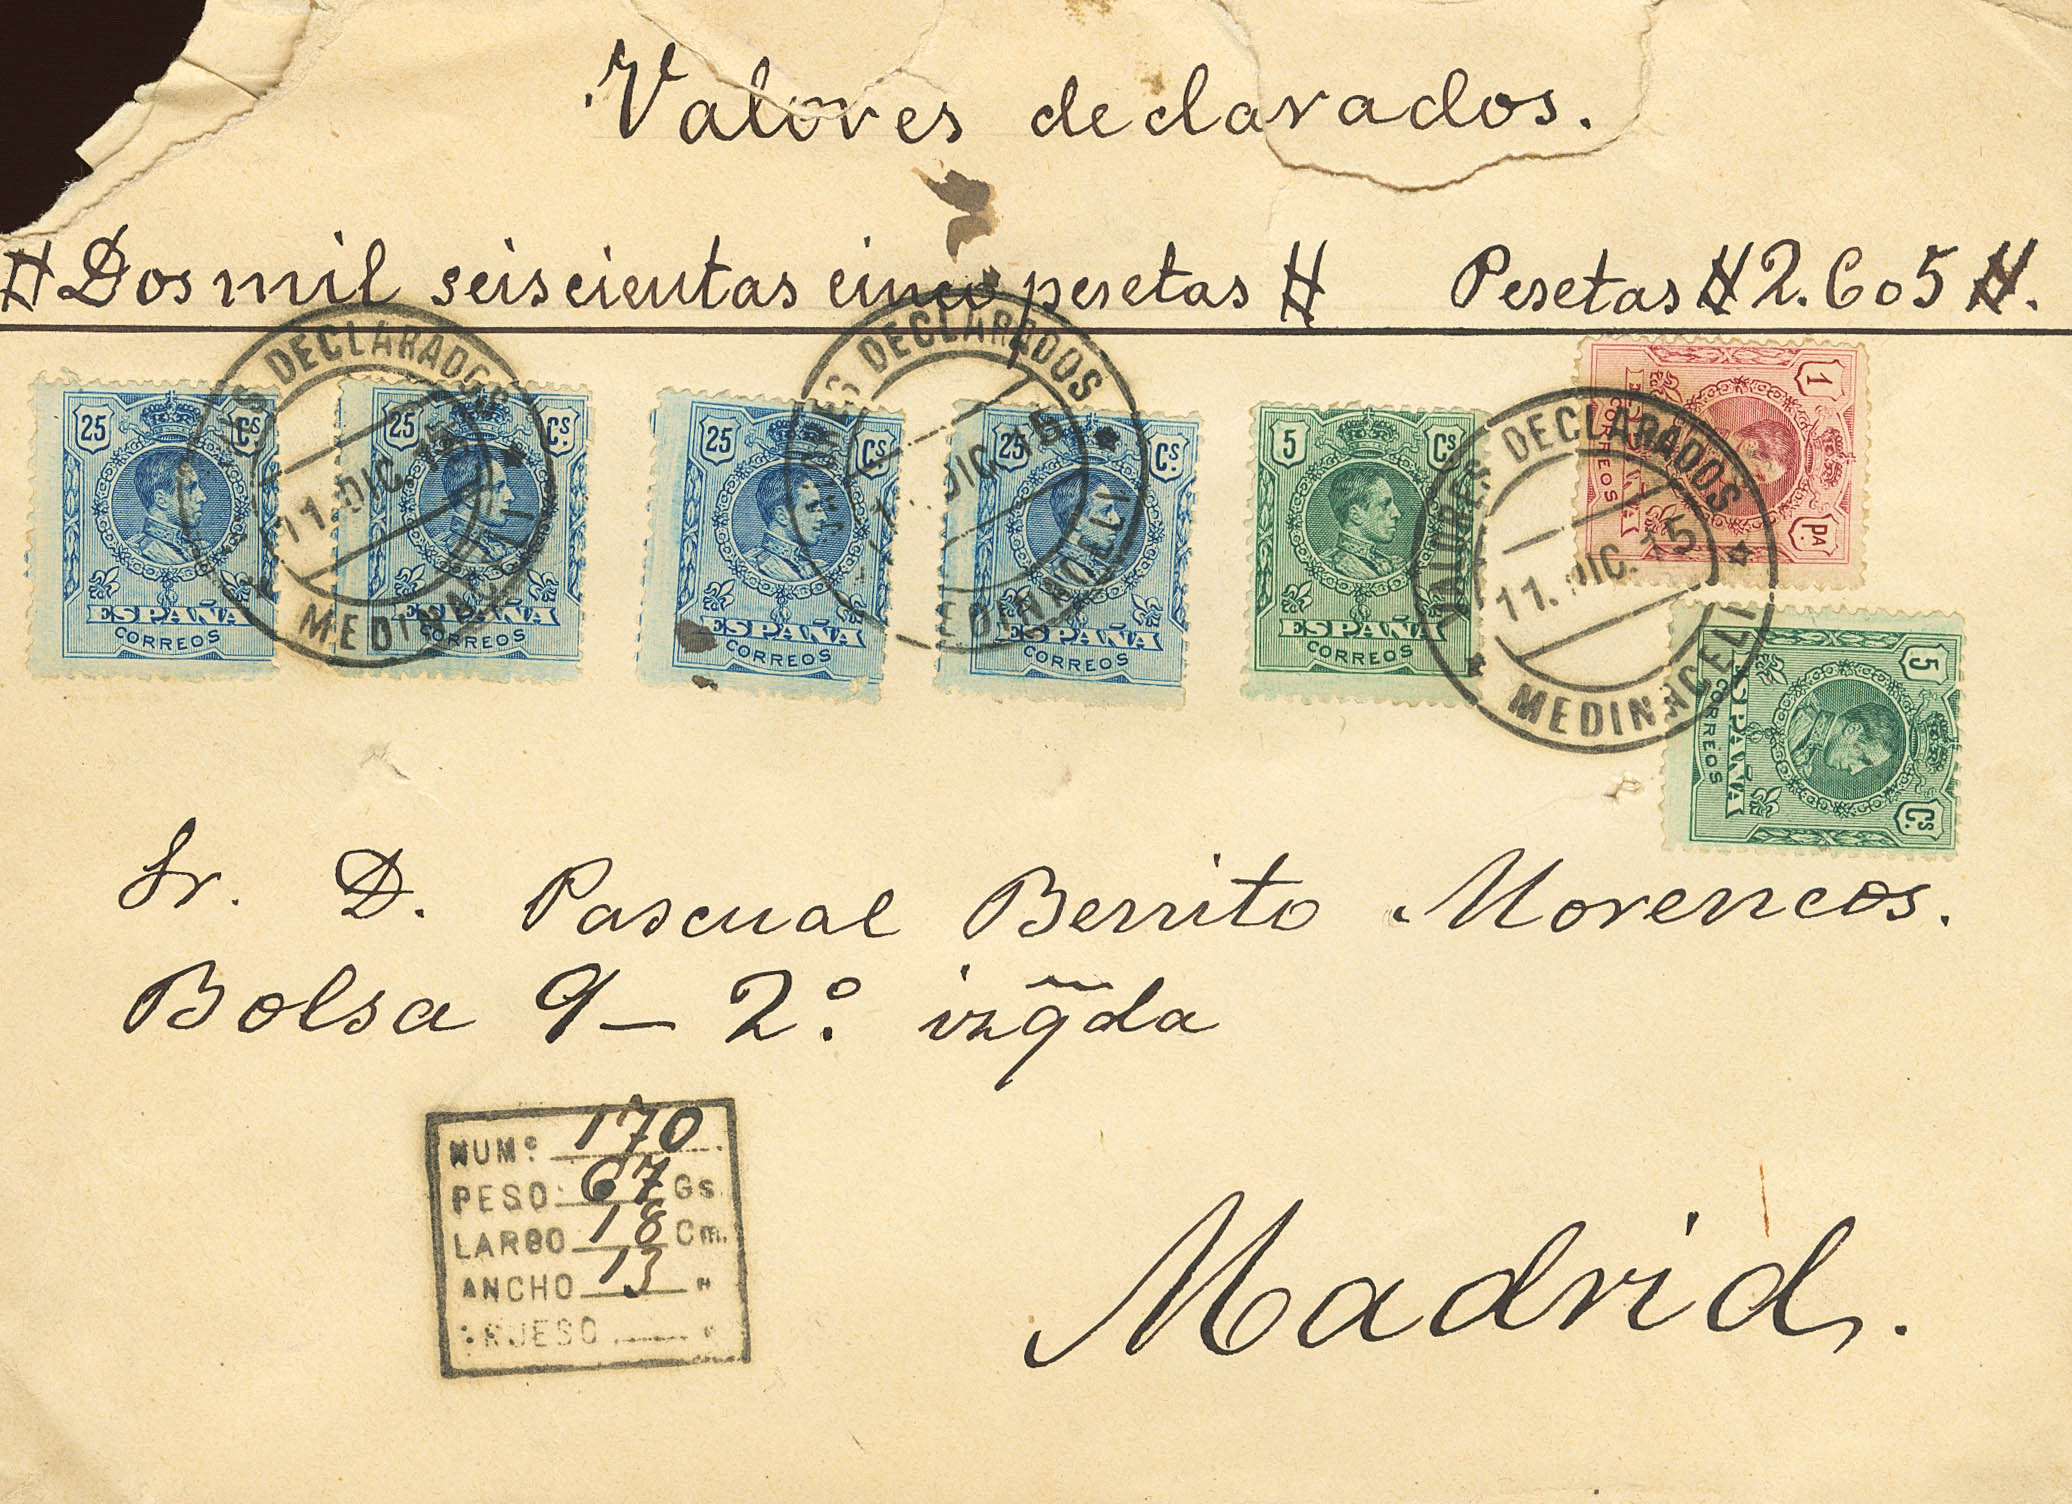 Valores declarados.
Dos mil seiscientas cinco pesetas Pesetas 2.605.
25 Cs. ESPAÑA CORREOS
25 Cs. ESPAÑA CORREOS
25 Cs. ESPAÑA CORREOS
25 Cs. ESPAÑA CORREOS
5 Cs. ESPAÑA CORREOS
1 PTA ESPAÑA CORREOS
5 Cs. ESPAÑA CORREOS
ES DECLARADOS 11.DIC.15 MEDINACELI
VALORES DECLARADOS 11.DIC.15 MEDINACELI
VALORES DECLARADOS 11.DIC.15 MEDINACELI
Sr. D. Pascual Bennito Morencos.
Bolsa 9 – 2.º izqda
NUMº 170
PESO 67 Gs.
LARGO 18 Cm.
ANCHO 13 "
GRUESO "
Madrid.